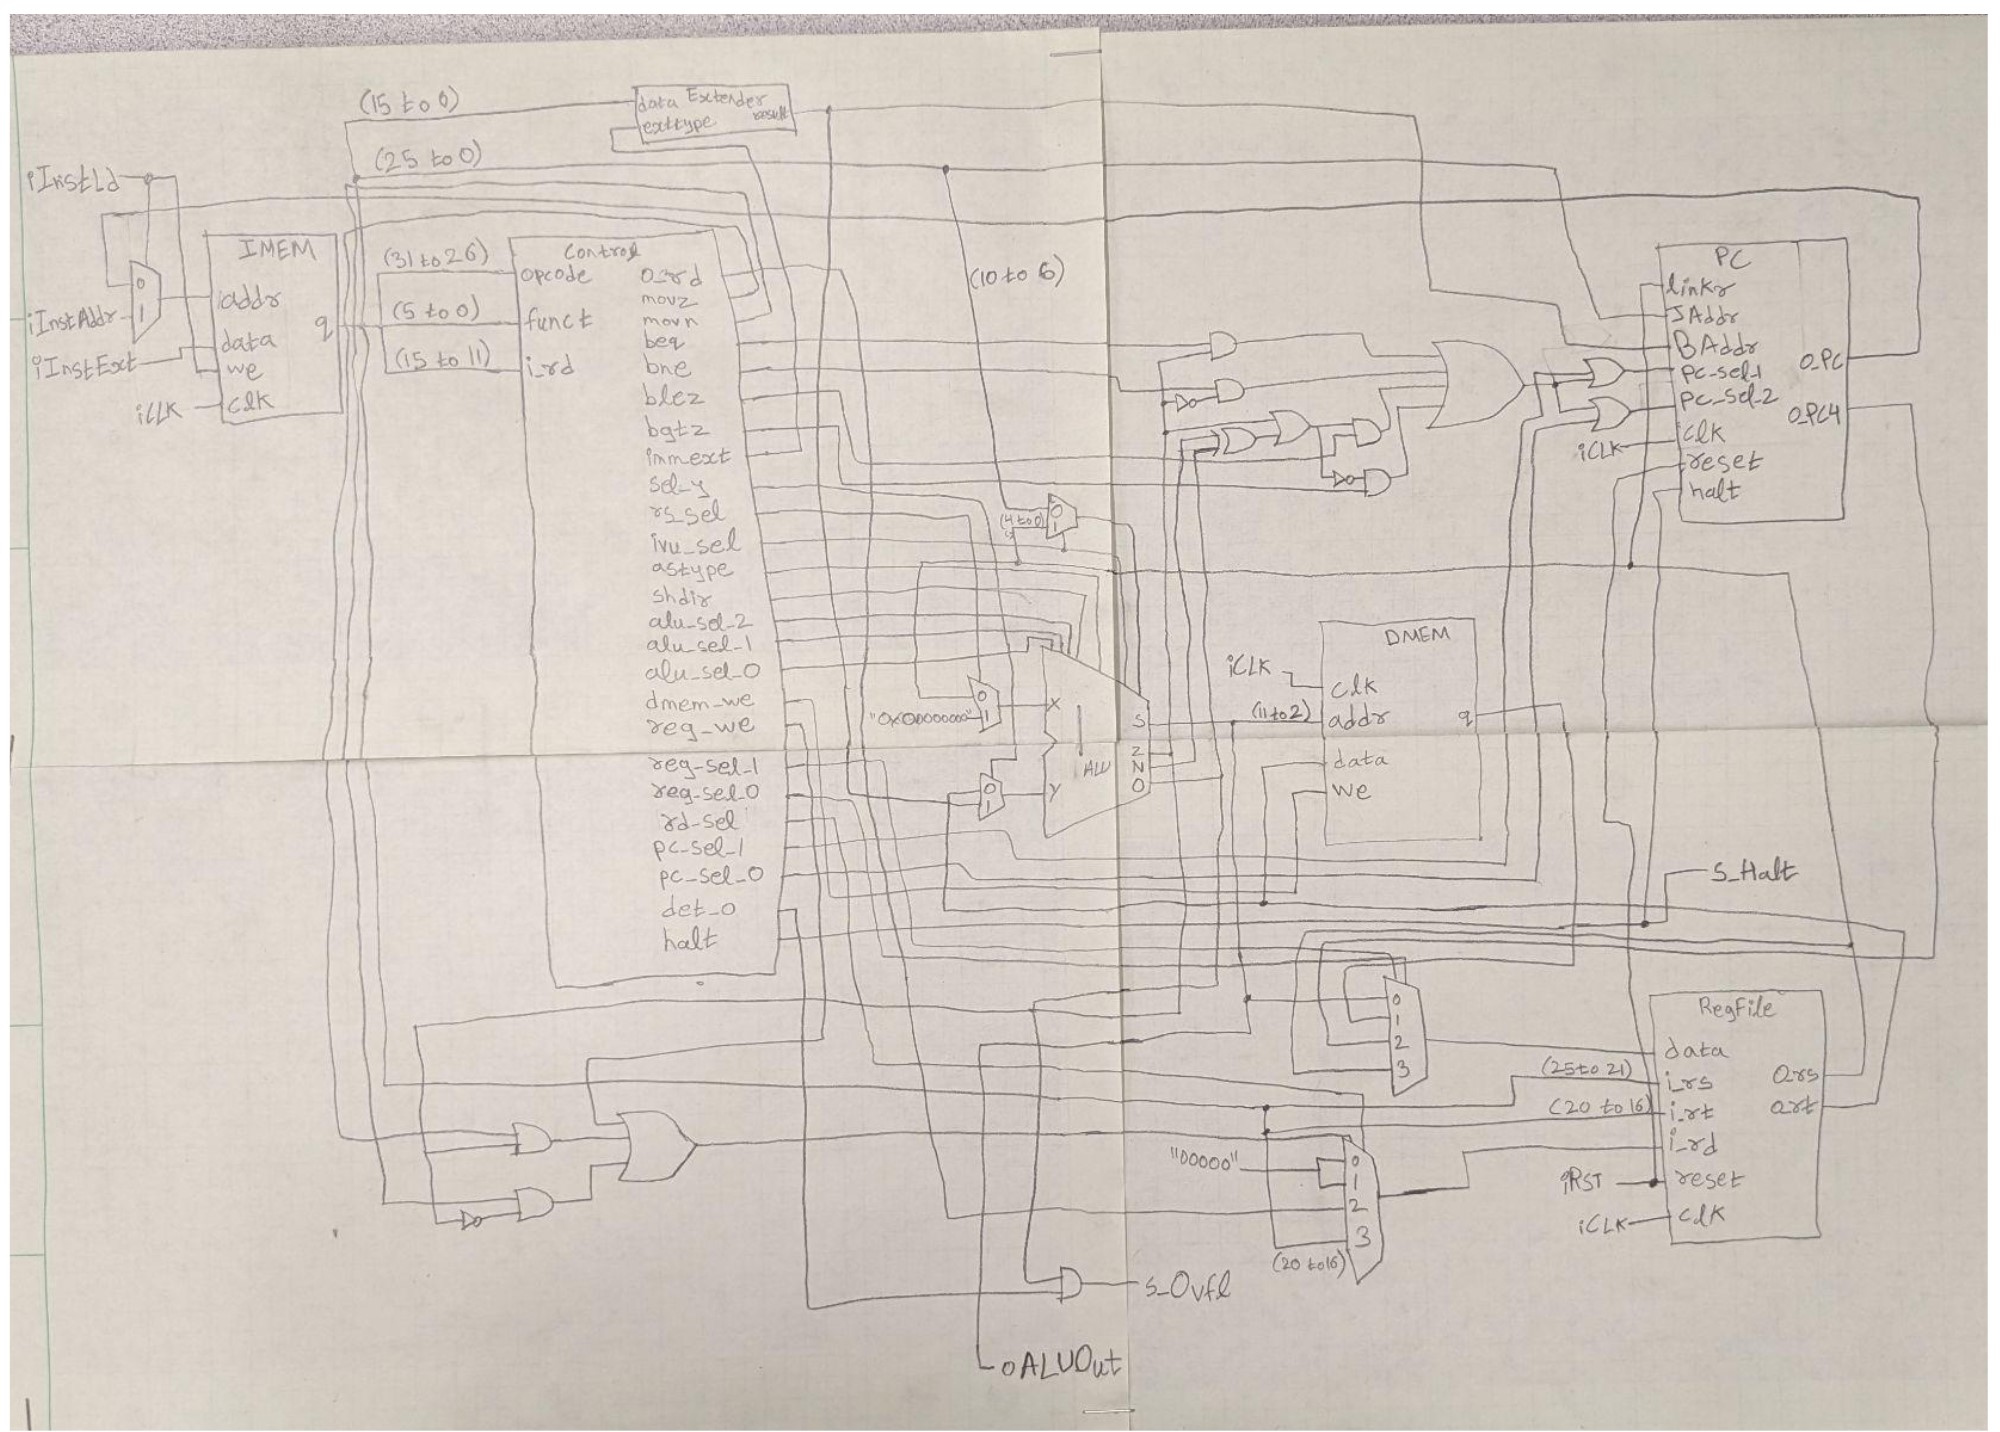 (15 to 0)
data Extender
exttype result
(25 to 0)
iInstLd
IMEM
0
1
iInstAddr
iaddr
q
data
iInstExt
we
iCLK
clk
(31 to 26)
(5 to 0)
(15 to 11)
Control
opcode
funct
i_rd
o_rd
movz
movn
beq
bne
blez
bgtz
immext
sel_y
rs_sel
ivu_sel
astype
shdir
alu_sel_2
alu_sel_1
alu_sel_0
dmem_we
reg_we
reg-sel-1
reg-sel-0
rd-sel
pc-sel-1
pc-sel-0
det-0
halt
(10 to 6)
0
1
(4 to 0)
0
1
"0x00000000"
0
1
X
Y
ALU
S
Z
N
O
PC
linkr
JAddr
BAddr
pc-sel-1
pc-sel-2
iCLK
iclk
reset
halt
o_PC
o_PC4
DMEM
iCLK
clk
(11 to 2)
addr
q
data
we
S_Halt
0
1
2
3
RegFile
data
(25 to 21)
i_rs
(20 to 16)
i_rt
i_rd
iRST
reset
iCLK
clk
o_rs
o_rt
"00000"
0
1
2
3
(20 to 16)
s_Ovfl
oALUOut